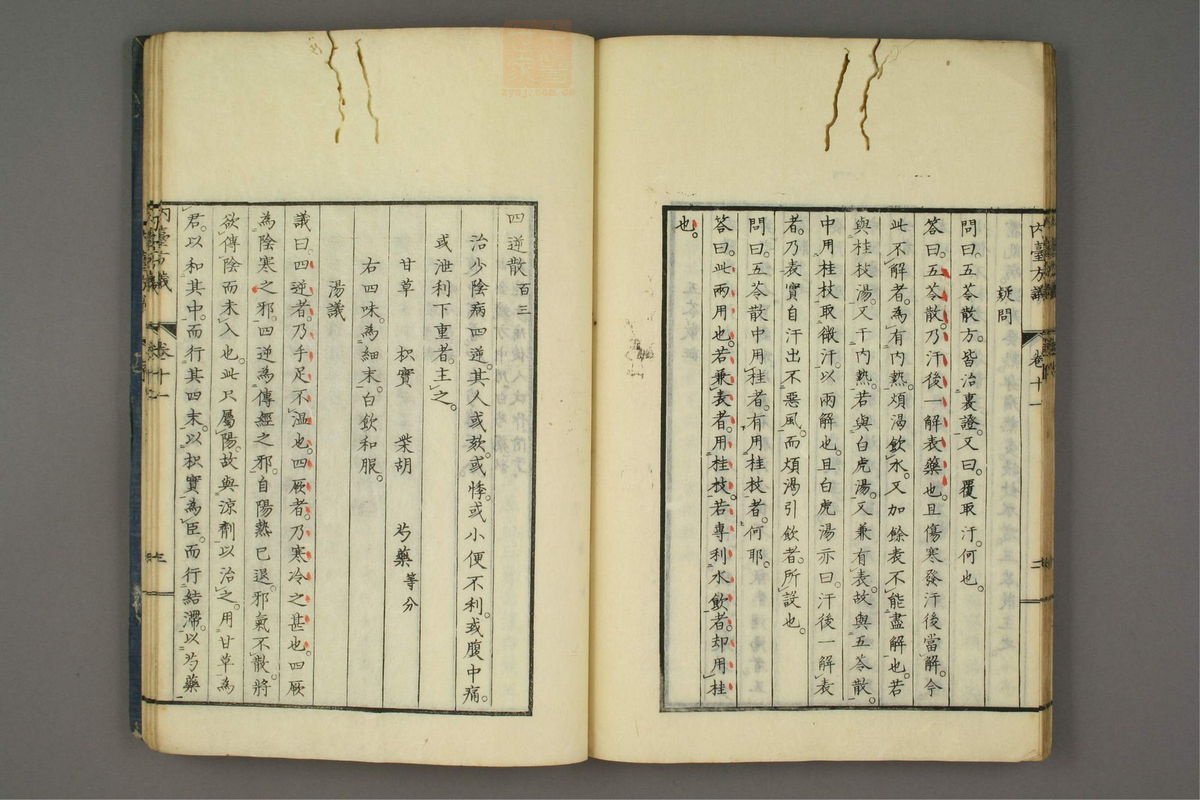 內臺方議 卷十一
疑問
問曰。五苓散方。皆治裏證。又曰。覆取汗。何也。
答曰。五苓散。乃汗後一解表藥也。且傷寒發汗後當解。今
此不解者。為有內熱。煩渴飲水。又加餘表不能盡解也。若
與桂枝湯。又干內熱。若與白虎湯。又兼有表。故與五苓散。
中用桂枝取微汗。以兩解也。且白虎湯亦曰。汗後一解表
者。乃表實自汗出不惡風。而煩渴引飲者。所設也。
問曰。五苓散中用桂者。有用桂枝者。何耶。
答曰。此兩用也。若兼表者。用桂枝。若專利水飲者。却用桂
也。
四逆散 百三
治少陰病四逆。其人或欬。或悸。或小便不利。或腹中痛。
或泄利下重者。主之。
甘草 枳實 柴胡 芍藥 等分
右四味。為細末。白飲和服。
湯議
議曰。四逆者。乃手足不溫也。四厥者。乃寒冷之甚也。四厥
為陰寒之邪。四逆為傳經之邪。自陽熱已退。邪氣不散。將
欲傳陰而未入也。此只屬陽。故與涼劑以治之。用甘草為
君。以和其中。而行其四末。以枳實為臣。而行結滯。以芍藥
卷十一